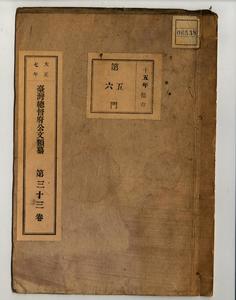 十五年保存
第五門
六
大正七年
臺灣總督府公文類纂
第三十三卷